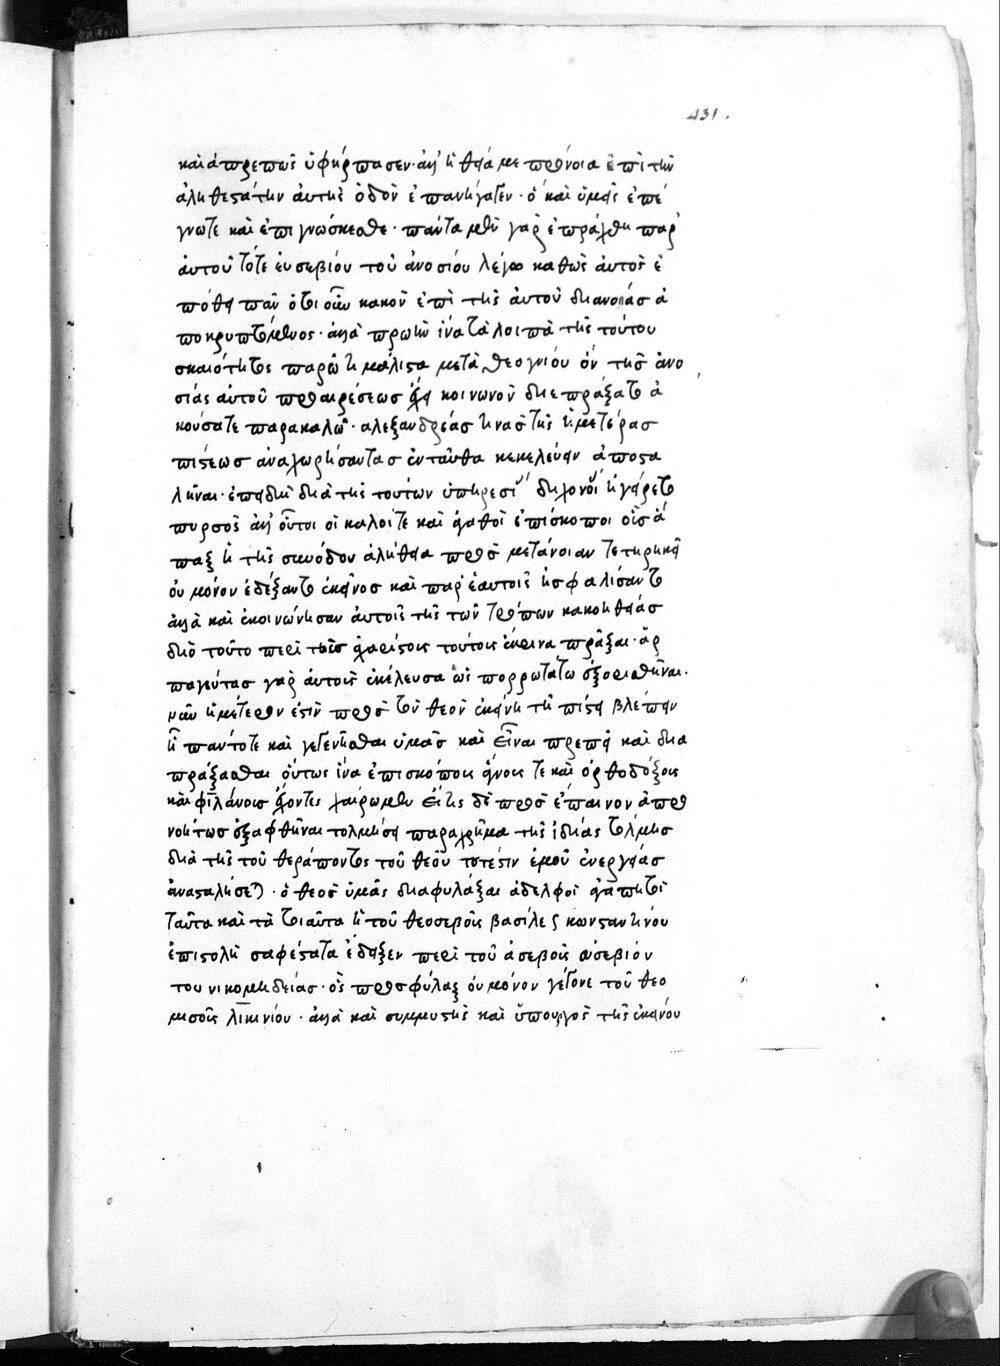 431.
καὶ ἀπρεπῶς ὑφήρπασεν· ἀλλ' ἡ θεία με πρόνοια ἐπὶ τὴν
ἀληθεστάτην αὐτῆς ὁδὸν ἐπανήγαγεν· ὃ καὶ ὑμεῖς ἐπέ
γνωτε καὶ ἐπιγνώσκεσθε· πάντα μὲν γὰρ ἐπράχθη παρ'
αὐτοῦ τότε εὐσεβίου τοῦ ἀνοσίου λέγω καθὼς αὐτὸς ἐ
πόθει πᾶν ὁτιοῦν κακὸν ἐπὶ τῆς αὐτοῦ διανοίας ἀ
ποκρυπτόμενος· ἀλλὰ πρώην ἵνα τὰ λοιπὰ τῆς τούτου
σκαιότητος παρῶ τί μάλιστα μετὰ θεογνίου ὃν τῆς ἀνο
σίας αὐτοῦ προαιρέσεως ἔχει κοινωνὸν διεπράξατο ἀ
κούσατε παρακαλῶ· αλεξανδρέας τινὰς τῆς ἡμετέρας
πίστεως ἀναχωρήσαντας ἐνταῦθα κεκελεύειν ἀποστα
λῆναι· ἐπειδὴ διὰ τῆς τούτων ὑπηρεσίας διχονοίας ἠγείρετο
πυρσὸς ἀλλ' οὗτοι οἱ καλοί τε καὶ ἀγαθοὶ ἐπίσκοποι οὓς ἅ
παξ ἡ τῆς συνόδου ἀλήθεια πρὸς μετάνοιαν τετηρήκει
οὐ μόνον ἐδέξαντο ἐκείνους καὶ παρ' ἑαυτοῖς ἠσφαλίσαντο
ἀλλὰ καὶ ἐκοινώνησαν αὐτοῖς τῆς τῶν τρόπων κακοηθείας
διὸ τοῦτο περὶ τοὺς ἀχαρίστους τούτους ἔκρινα πρᾶξαι· ἁρ
παγέντας γὰρ αὐτοὺς ἐκέλευσα ὡς πορρωτάτω ἐξορισθῆναι·
νῦν ἡμέτερον ἐστὶν πρὸς τὸν θεὸν ἐκείνῃ τῇ πίστει βλέπειν
ᾗ πάντοτε καὶ γεγενῆσθαι ὑμᾶς καὶ εἶναι πρέπει καὶ δια
πράξασθαι οὕτως ἵνα ἐπισκόπους ἁγνούς τε καὶ ὀρθοδόξους
καὶ φιλάνους ἔχοντες χαίρωμεν εἴ τις δὲ πρὸς ἔπαινον ἀπρο
νοήτως ἐξαφθῆναι τολμήσει παραχρῆμα τῆς ἰδίας τόλμης
διὰ τῆς τοῦ θεράποντος τοῦ θεοῦ τουτέστιν ἐμοῦ ἐνεργείας
ἀνασταλήσεται· ὁ θεὸς ὑμᾶς διαφυλάξαι ἀδελφοὶ ἀγαπητοί
ταῦτα καὶ τὰ τοιαῦτα ἡ τοῦ θεοσεβοῦς βασιλέως κωνσταντίνου
ἐπιστολὴ σαφέστατα ἔδειξεν περὶ τοῦ ἀσεβοῦς εὐσεβίου
του νικομηδείας· ὃς προσφύλαξ οὐ μόνον γέγονε τοῦ θεο
μισοῦς λικινίου· ἀλλὰ καὶ συμμύστης καὶ ὑπουργὸς τῆς ἐκείνου